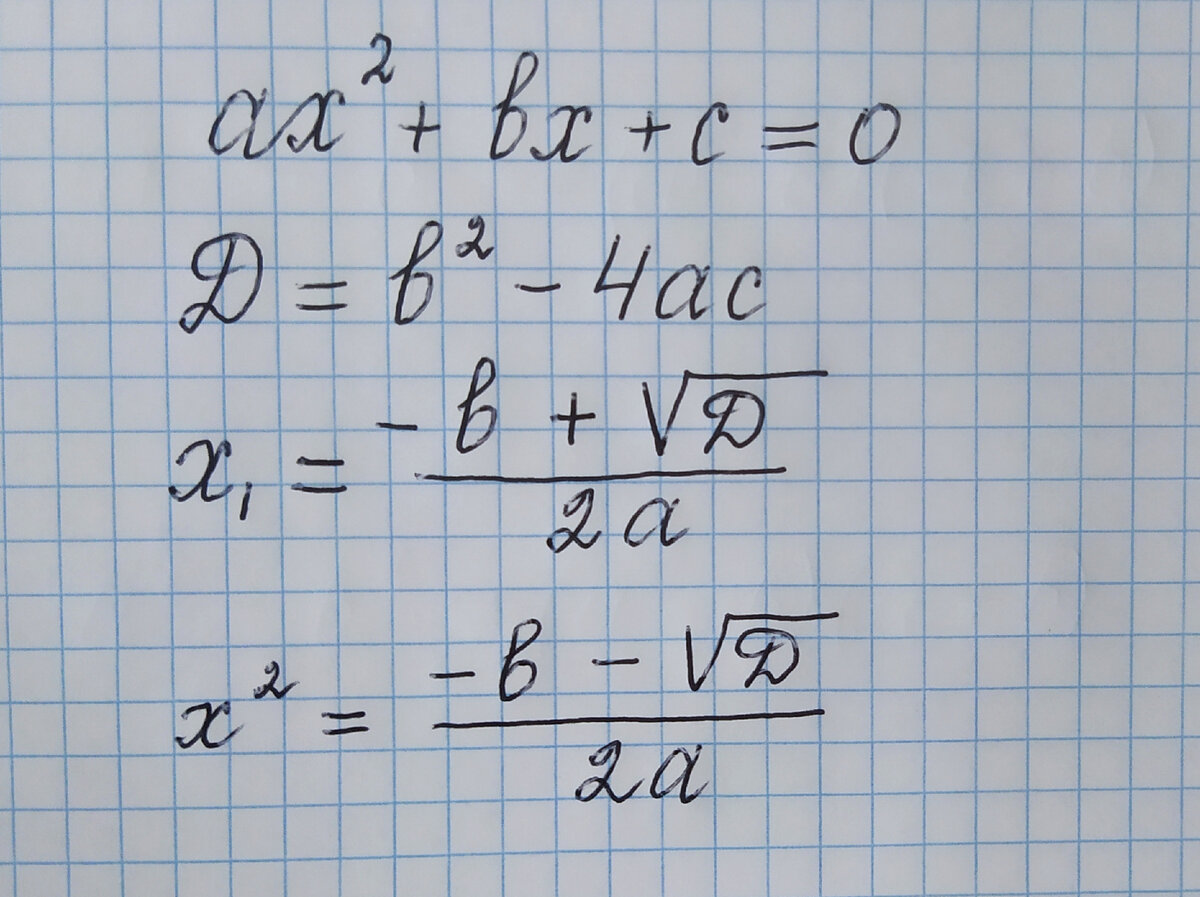 ax² + bx + c = 0
Д = b² - 4ac
x₁ = (-b + √Д) / 2a
x² = (-b - √Д) / 2a